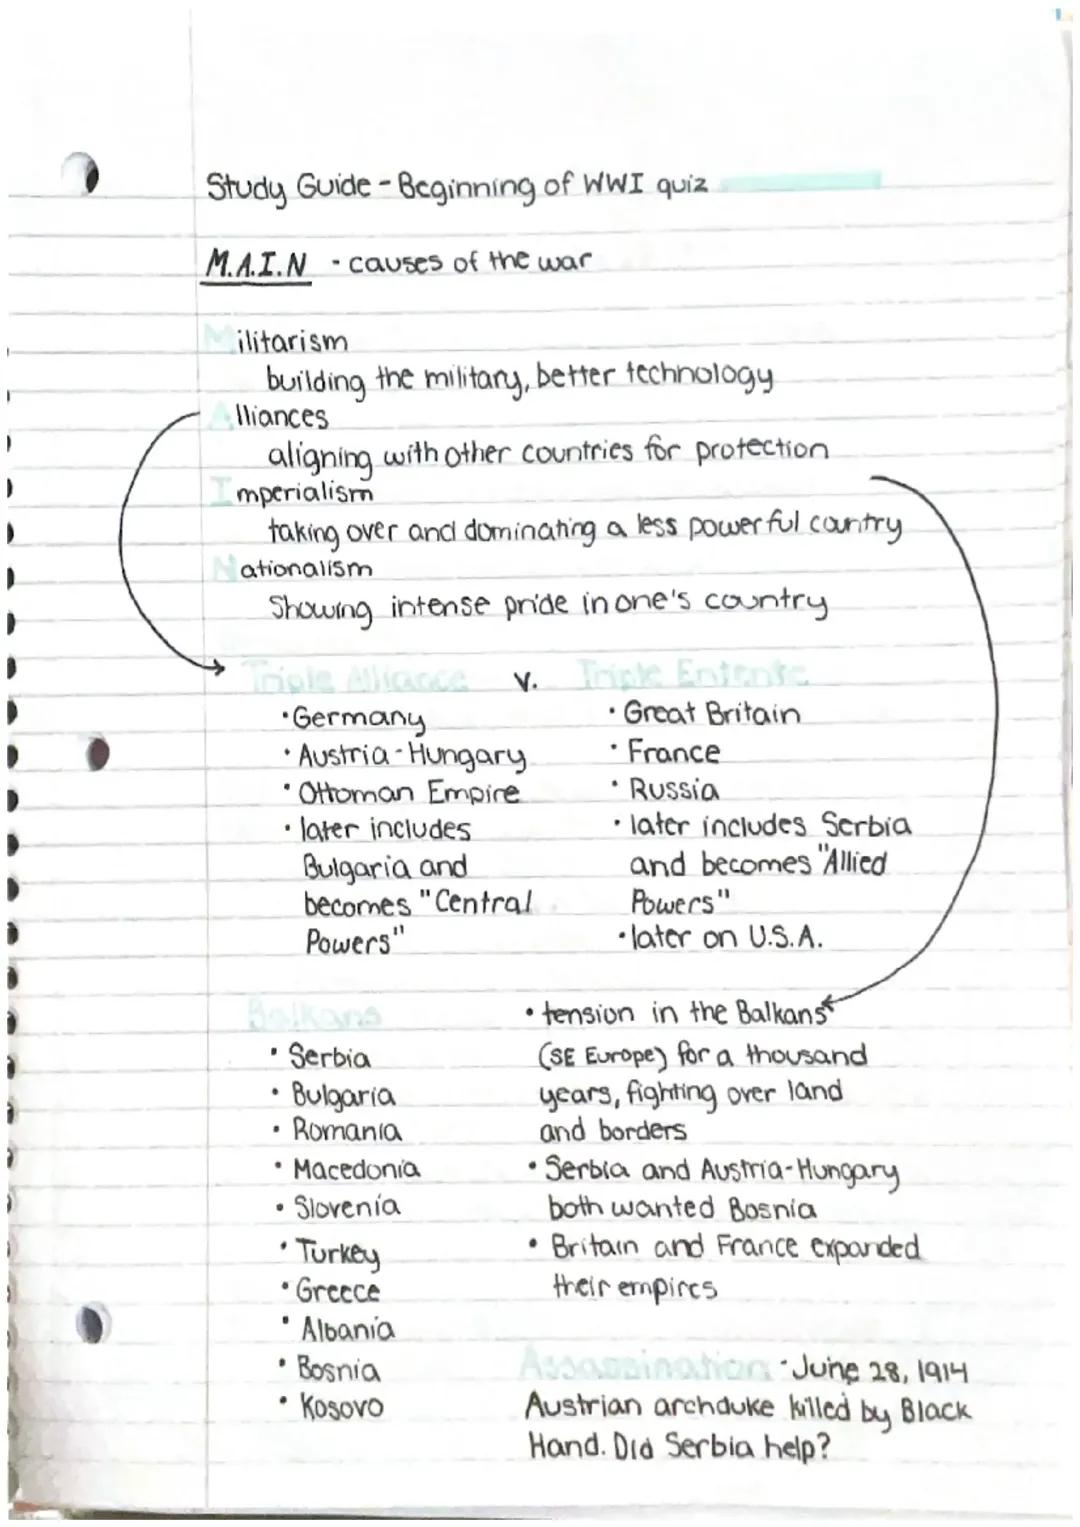 Study Guide - Beginning of WWI quiz
M.A.I.N - causes of the war
Militarism
building the military, better technology
Alliances
aligning with other countries for protection
Imperialism
taking over and dominating a less powerful country
Nationalism
Showing intense pride in one's country
Triple Alliance v. Triple Entente
• Germany
• Austria-Hungary
• Ottoman Empire
• later includes
Bulgaria and
becomes "Central
Powers"
• Great Britain
• France
• Russia
• later includes Serbia
and becomes "Allied
Powers"
• later on U.S.A.
Balkans
• Serbia
• Bulgaria
• Romania
• Macedonia
• Slovenia
• Turkey
• Greece
• Albania
• Bosnia
• Kosovo
• tension in the Balkans
(SE Europe) for a thousand
years, fighting over land
and borders
• Serbia and Austria-Hungary
both wanted Bosnia
• Britain and France expanded
their empires
Assassination • June 28, 1914
Austrian archduke killed by Black
Hand. Did Serbia help?